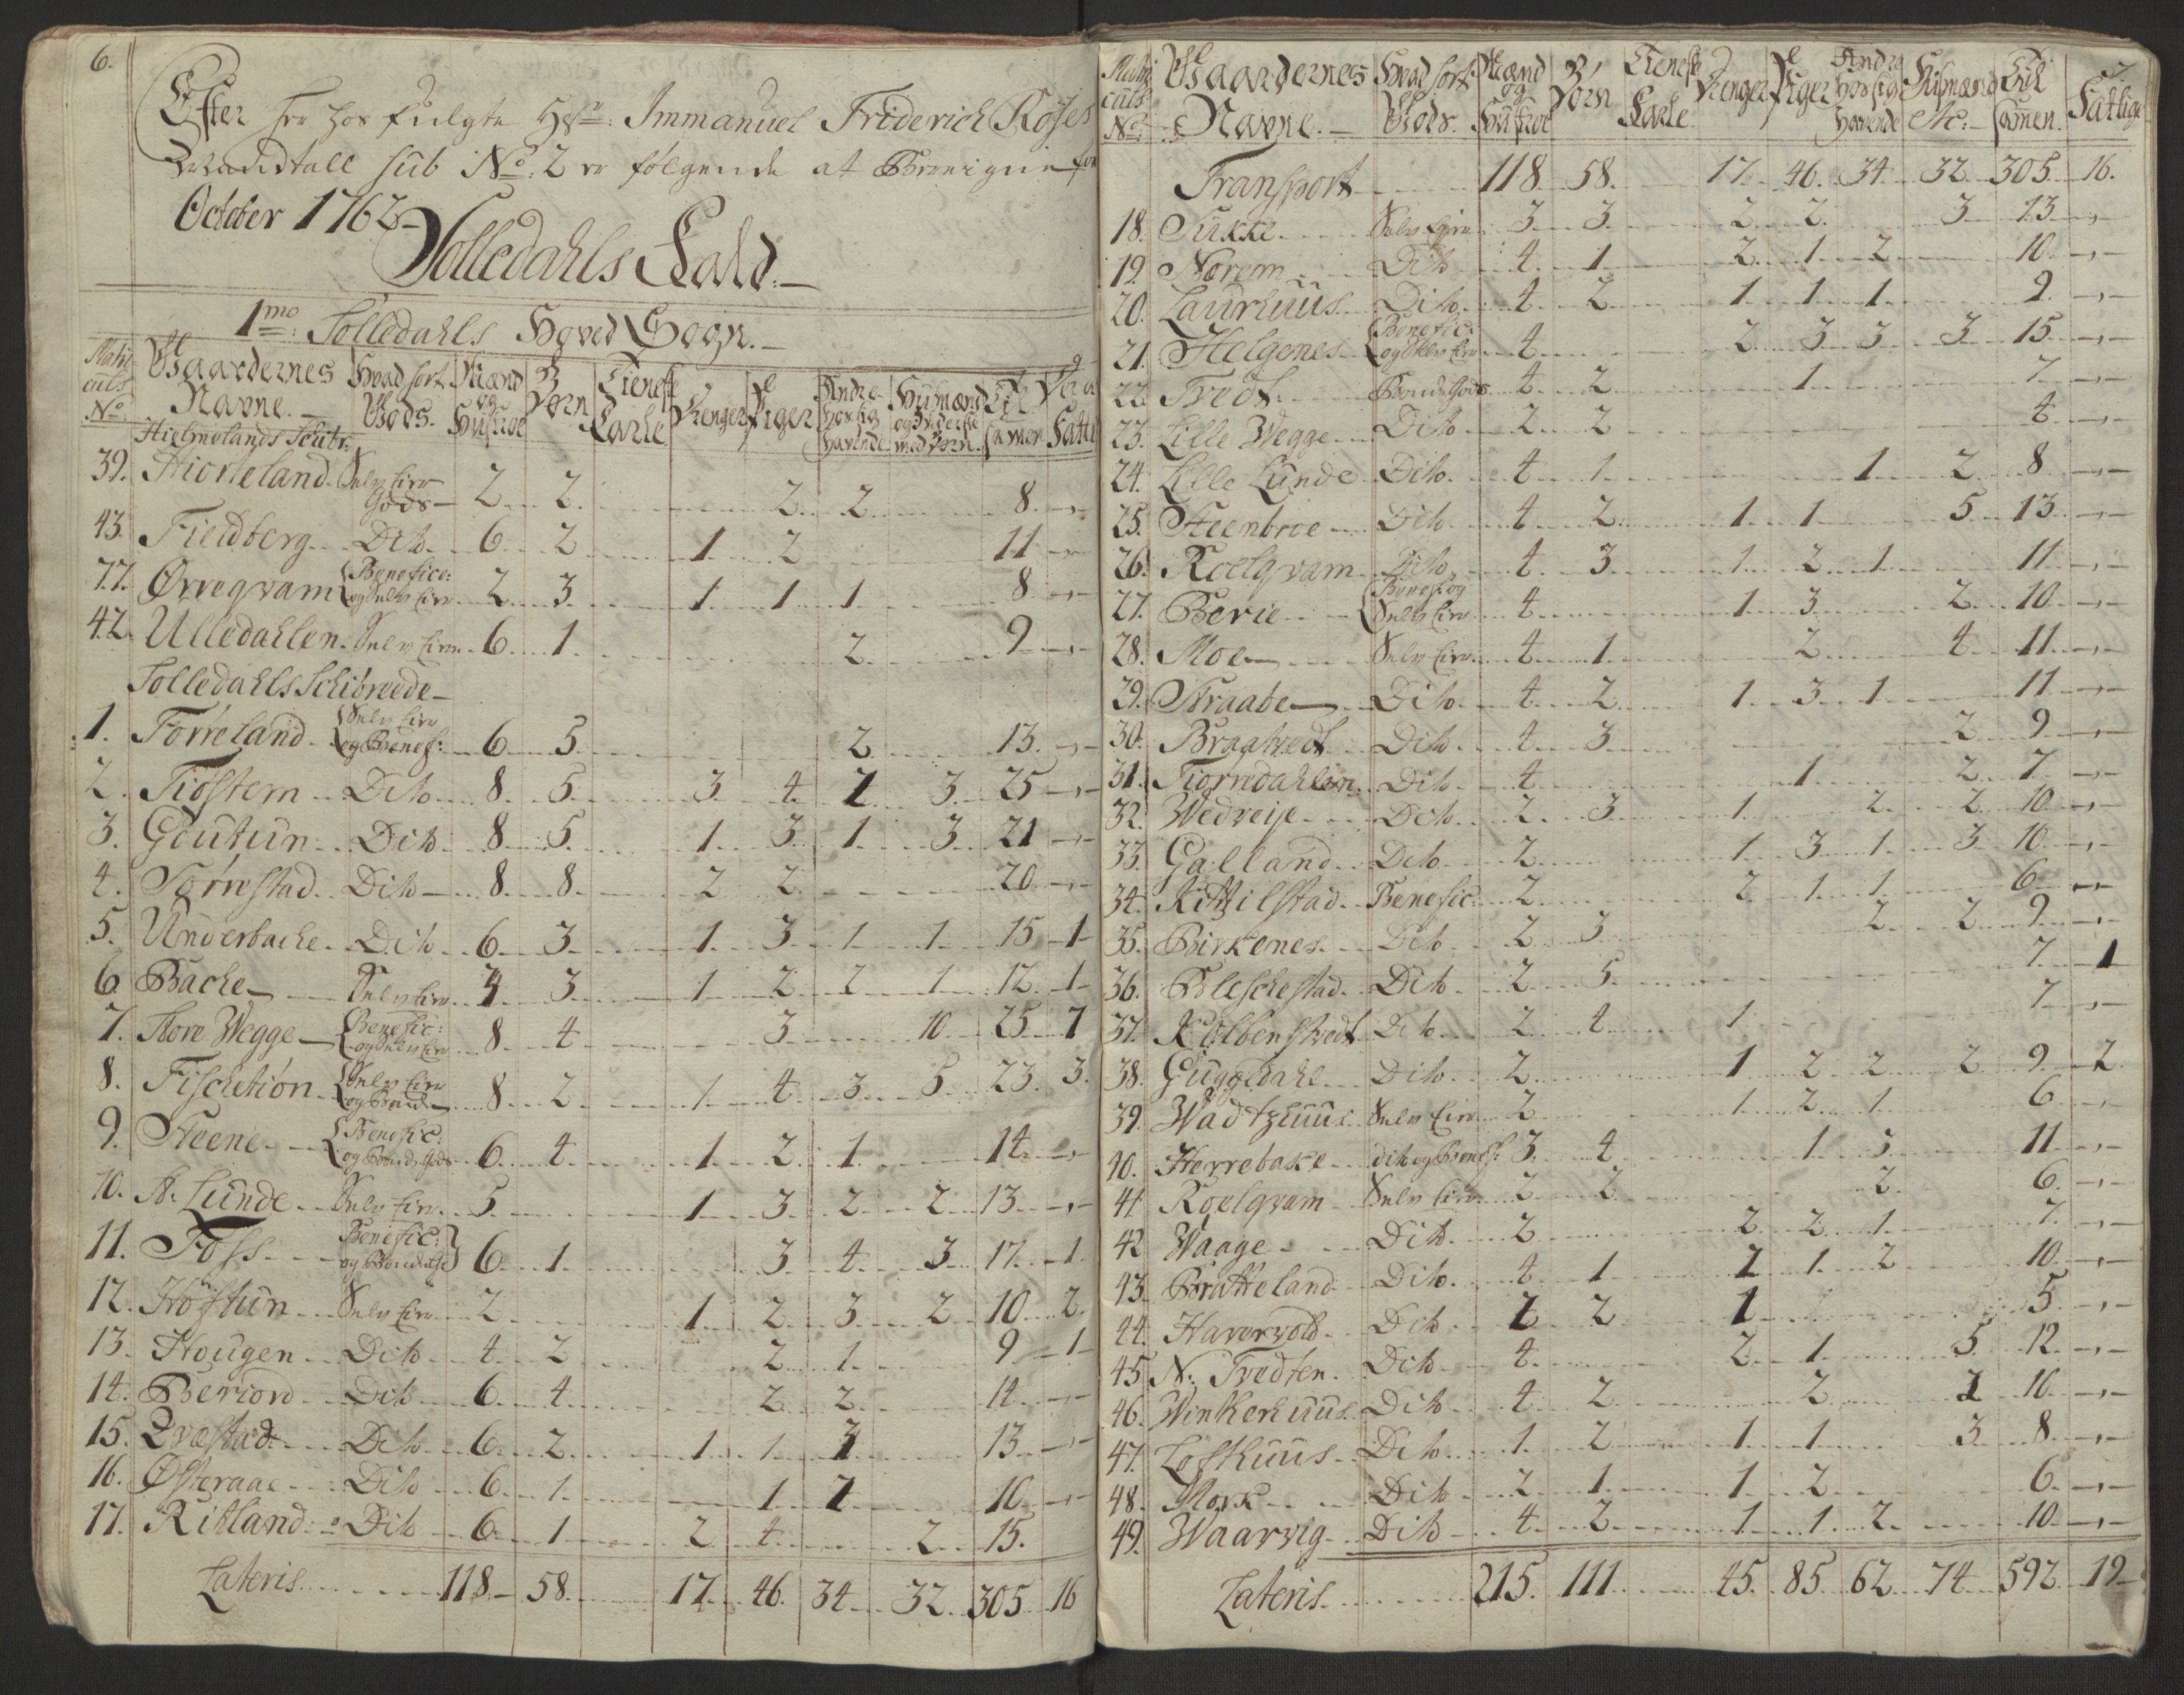 6.
Efter her hos fulgte Hr: Immanuel Friderich Röjes
Mandtall sub No: 2 er følgende at Bevigne for
October 1762
Jolledahls Kald.
1mo: Jolledahls Hoved Sogn.
Matri culs No. Gaardernes Navne. Hvad sort Gods. Mænd og Hustroe Børn Tieneste Karle Drenger Piger Andre hos sig havende Husmænd og Inderste med Børn. Til samen Fatti
Hielmelands Schibr:
39. Hiorteland. Selv Eier Gods 2 2 2 2 8
43. Fieldberg Dito 6 2 1 2 11
77. Ørregvam Benefice: og Selv Eier 2 3 1 1 1 8
42. Ulledahlen. Selv Eier 6 1 2 9
Jolledahls Schibreede
1. Førreland Selv Eier og Benef: 6 5 2 13
2. Tiøstem Dito 8 5 3 4 2 3 25
3. Goutun Dito 8 5 1 3 1 3 21
4. Tørrestad Dito 8 8 2 2 20
5. Underbacke Dito 6 3 1 3 1 1 15 1
6. Backe Selv Eier 4 3 1 2 2 1 12 1
7. Store Wegge Benefic: og Selv Eier 8 4 3 10 25 7
8. Fiscution Selv Eier og Bonde 8 2 1 4 3 5 23 3
9. Steene Benefic: og Bonde Gods 6 4 1 2 1 14
10. St. Lunde Selv Eier 5 1 3 2 2 13
11. Foss Benefic: og Bonde Gods 6 1 3 4 3 17 1
12. Høstun Selv Eier 2 1 2 3 2 10 2
13. Hougen Dito 4 2 2 1 9 1
14. Beriord Dito 6 4 2 2 14
15. Qvæstad Dito 6 2 1 1 3 13
16. Østeraae Dito 6 1 1 2 10
17. Ritland Dito 6 1 2 4 2 15
Lateris 118 58 17 46 34 32 305 16
7
Matri culs No: Gaardernes Navne. Hvad sort Gods. Mænd og Hustroe Børn Tieneste Karle Drenger Piger Andre hos sig havende Husmænd etc: Til samen. Fattige
Transport 118 58 17 46 34 32 305 16
18. Tukke Selv Eier 3 3 2 2 3 13
19. Norem Dito 4 1 2 1 2 10
20. Laurhuus Dito 4 2 1 1 1 9
21. Helgenes Benefic: og Selv Eier 4 2 3 3 3 15
22. Tvedt Bonde Gods 4 2 1 7
23. Lille Wegge Dito 2 2 4
24. Lille Lunde Dito 4 1 1 2 8
25. Steenbroe Dito 4 2 1 1 5 13
26. Roelqvam Dito 4 3 1 2 1 11
27. Berie Benef: og Selv Eier 4 1 3 2 10
28. Moe Selv Eier 4 1 2 4 11
29. Straabe Dito 4 2 1 3 1 11
30. Braatvedt Dito 4 3 2 9
31. Tiorndahlen Dito 4 1 2 7
32. Wedreije Dito 2 3 1 2 2 10
33. Galland Dito 2 1 3 1 3 10
34. Kittilstad Benefic: 2 2 1 1 6
35. Birkenes Dito 2 3 2 2 9
36. Bleschestad Dito 2 5 7 1
37. Kolbenstvedt Dito 2 4 1 7
38. Guggedahl Dito 2 1 2 2 2 9 2
39. Wadtzhuus Selv Eier 2 1 2 1 6
40. Herrebake dito og Benef: 3 4 1 3 11
41 Roelqvam Selv Eier 2 2 2 6
42 Waage Dito 2 2 2 1 7
43. Bratteland Dito 4 1 2 1 2 10
44. Havervold Dito 2 2 1 5
45 N: Tvedten Dito 4 2 1 5 12
46. Winkerhuus Dito 4 2 2 2 10
47. Lofthuus Dito 1 2 1 1 3 8
48. Mork Dito 2 1 1 2 6
49. Waarvig Dito 4 2 1 1 2 10
Lateris 215 111 45 85 62 74 592 19